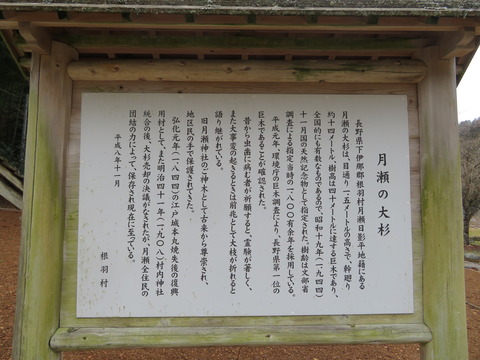 月瀬の大杉
長野県下伊那郡根羽村月瀬日影平地籍にある
月瀬の大杉は、目通り一・五メートルの高さで、幹廻り
約十四メートル、樹高は四十メートルに達する巨木であり、
全国的にも有数なものであるので、昭和十九年（一九四四）
十一月国の天然記念物として指定された。樹齢は文部省
調査による指定当時の一八〇〇有余年を採用している。
平成元年、環境庁の巨木調査により、長野県第一位の
巨木であることが確認された。
昔から虫歯に病む者が祈願すると、霊験が著しく、
また大事変の起きるときは前兆として大枝が折れると
語り継がれている。
旧月瀬神社のご神木として古来から尊崇され、
地区民の手で保護されてきた。
弘化元年（一八四四）の江戸城本丸焼失後の復興
用材として、また明治四十一年（一九〇八）村内神社
統合の後、大杉売却の決議がなされたが、月瀬全住民の
団結の力によって、保存され現在に至っている。
平成八年十一月
根羽村